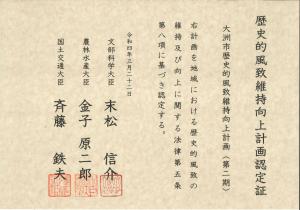 歴史的風致維持向上計画認定証
大洲市歴史的風致維持向上計画（第二期）
右計画を地域における歴史的風致の
維持及び向上に関する法律第五条
第八項に基づき認定する。
令和四年三月二十二日
文部科学大臣 末松 信介
農林水産大臣 金子 原二郎
国土交通大臣 斉藤 鉄夫